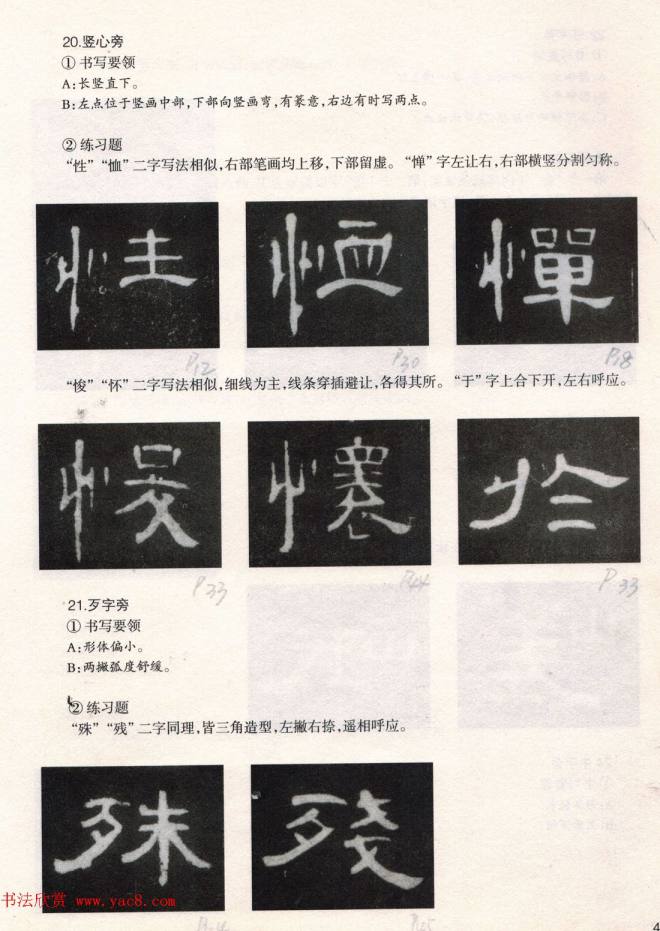 20.竖心旁
① 书写要领
A:长竖直下。
B:左点位于竖画中部,下部向竖画弯,有篆意,右边有时写两点。
② 练习题
“性”“恤”二字写法相似,右部笔画均上移,下部留虚。“惮”字左让右,右部横竖分割匀称。
性 恤 憚
P12 P30 P18
“悛”“怀”二字写法相似,细线为主,线条穿插避让,各得其所。“于”字上合下开,左右呼应。
懷 於
P33 P44 P33
21.歹字旁
① 书写要领
A:形体偏小。
B:两撇弧度舒缓。
② 练习题
“殊”“残”二字同理,皆三角造型,左撇右捺,遥相呼应。
殊 殘
书法欣赏 www.yac8.com
4